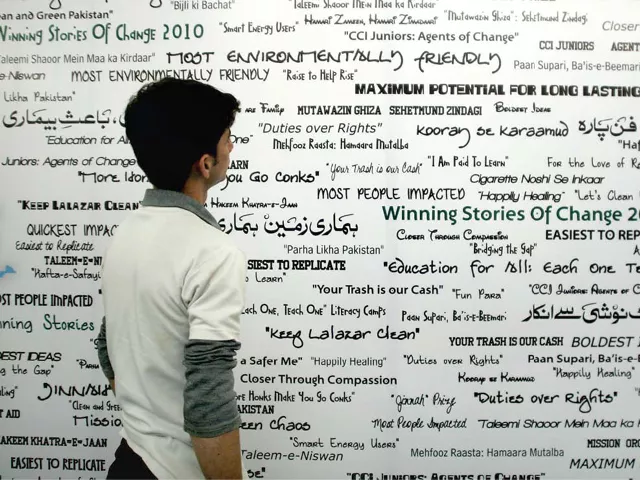 ean and Green Pakistan"
"Bijli ki Bachat"
Taleemi Shaoor Mein Maa ka Kirdaar"
Winning Stories Of Change 2010
"Smart Energy Users"
Hamari Zameen, Hamari Zimadari
"Mutawazin Ghiza": Sehetmund Zindagi
Closer
"CCI Juniors: Agents of Change"
CCI JUNIORS
AGENT
Taleemi Shaoor Mein Maa ka Kirdaar"
MOST ENVIRONMENTALLY FRIENDLY
Paan Supari, Ba'is-e-Beemari
e-Niswan
MOST ENVIRONMENTALLY FRIENDLY
"Raise to Help Rise"
MAXIMUM POTENTIAL FOR LONG LASTING
Likha Pakistan"
are Family
MUTAWAZIN GHIZA
SEHETMUND ZINDAGI
Boldest Ideas
باعثِ بیماری
"Duties over Rights"
Kooray se Karaamud
فن پارہ
"Education for Al
One"
Mehfooz Raasta: Hamaara Mutalba
"Haf
Juniors: Agents of Change
EARN
"Your Trash is our Cash"
"I Am Paid To Learn"
For the Love of R
"More Idon
you Go Conks"
Cigarette Noshi Se Inkaar
MOST PEOPLE IMPACTED
"Happily Healing"
"Let's Clean
"KEEP LALAZAR CLEAN"
Hakeem Khatra-e-Jaan
Winning Stories Of Change 2
QUICKEST IMPAC
ہماری زمین ہماری
Closer Through Compassion
EASIEST TO REP
Easiest to Replicate
"Parha Likha Pakistan"
"Bridging the Gap"
TALEEM-E-NI
"Hafta-e-Safayi
SIEST TO REPLICATE
"Education for All: Each One Te
o Learn"
OST PEOPLE IMPACTED
"Your Trash is our Cash"
"Fun Para"
"CCI Juniors: Agents of C
nning Stories
ach One, Teach One" Literacy Camps
Paan Supari, Ba'is-e-Beemari
نوشی سے انکار
"Keep Lalazar Clean"
YOUR TRASH IS OUR CASH
BOLDEST I
DEST IDEAS
g the Gap"
"Parha
a Safer Me"
"Happily Healing"
"Duties over Rights"
Paan Supari, Ba'is-e-B
Closer Through Compassion
"Happily Healing"
ling"
re Honks Make You Go Conks"
"Jinnah" Prize
"Duties over Rights"
T AID
"Clean and Green
AKISTAN
Missio
een Chaos
Most People Impacted
Taleemi Shaoor Mein Maa ka
AKEEM KHATRA-E-JAAN
"Smart Energy Users"
MISSION
EASIEST TO REPLICATE
Taleem-e-Niswan
Mehfooz Raasta: Hamaara Mutalba
MAXIMUM
se"
"CCI Juniors: Agents of Change"